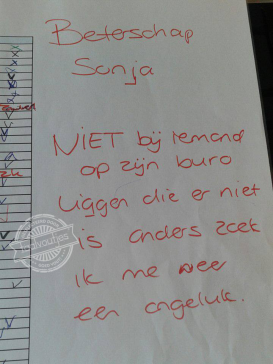 Beterschap
Sonja
NIET bij iemand
op zijn buro
Liggen die er niet
is anders zoek
ik me weer
een ongeluk.